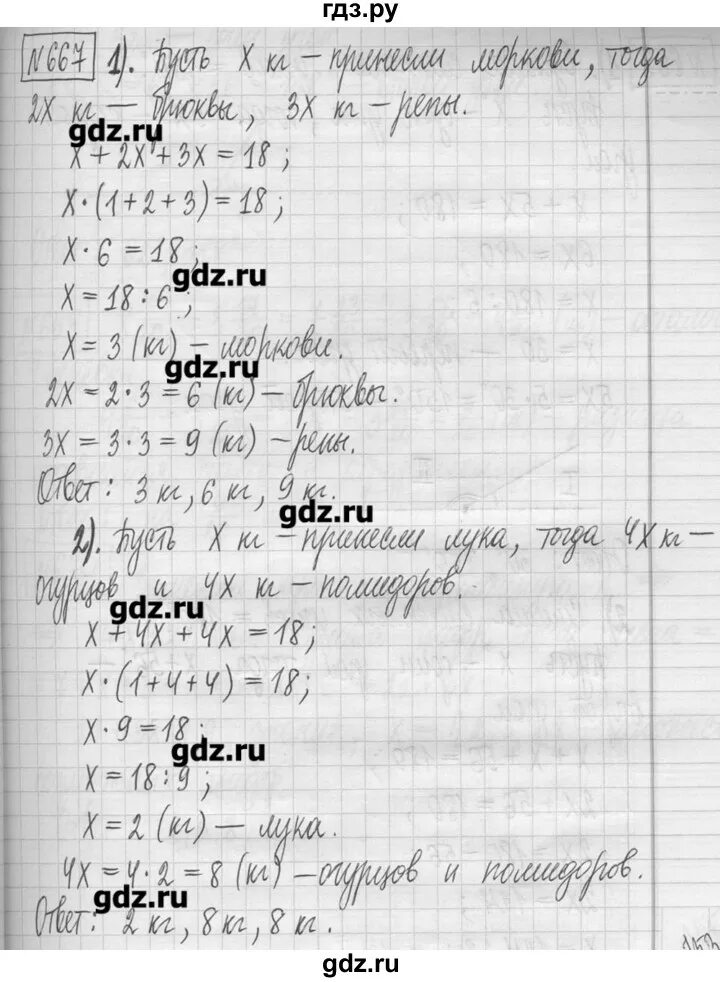 гдз.ру
№667 1). Пусть х кг – принесли моркови, тогда
2х кг – брюквы, 3х кг – репы.
gdz.ru
х + 2х + 3х = 18;
х·(1+2+3)=18;
х·6 = 18;
gdz.ru
х = 18:6;
х = 3 (кг) – моркови.
gdz.ru
2х = 2·3 = 6 (кг) – брюквы.
3х = 3·3 = 9 (кг) – репы.
Ответ: 3 кг, 6 кг, 9 кг.
gdz.ru
2). Пусть х кг – принесли лука, тогда 4х кг –
огурцов и 4х кг – помидоров.
gdz.ru
х + 4х + 4х = 18;
х·(1+4+4)=18;
х·9 = 18;
gdz.ru
х = 18:9;
х = 2 (кг) – лука.
4х = 4·2 = 8 (кг) – огурцов и помидоров.
gdz.ru
Ответ: 2 кг, 8 кг, 8 кг.
gdz.ru